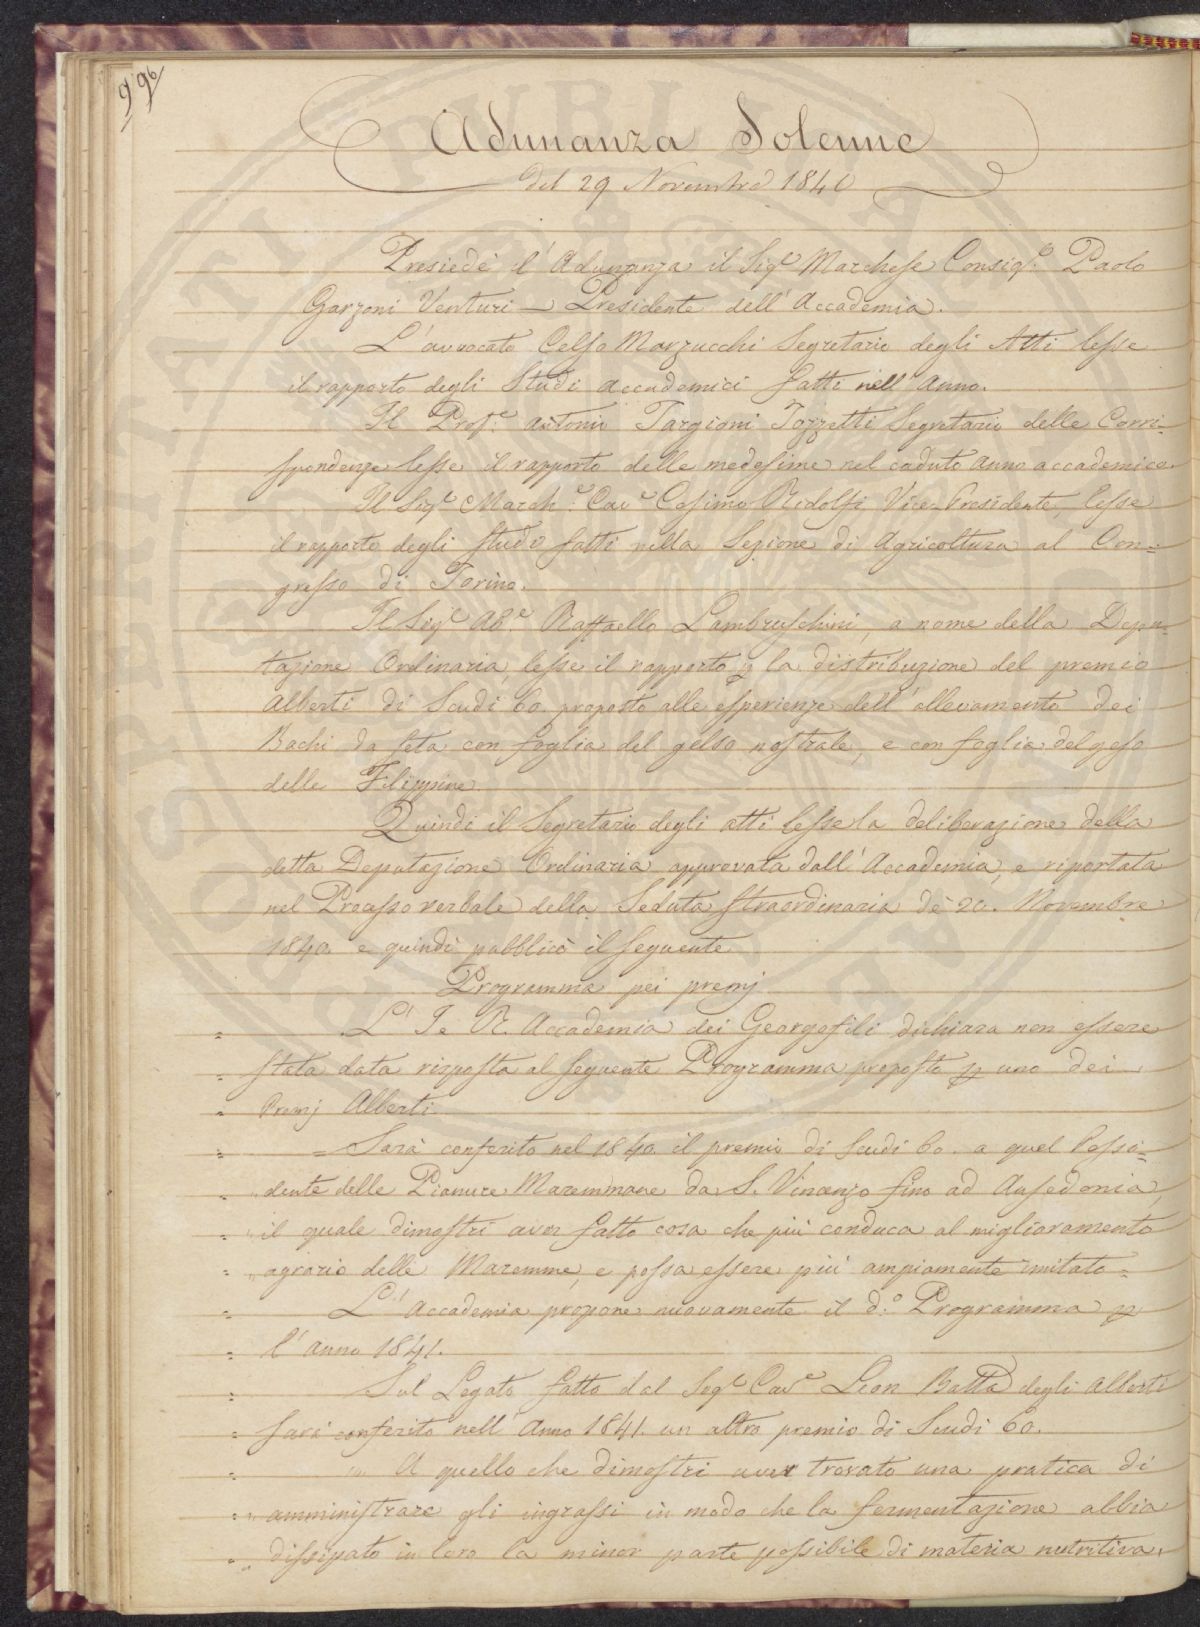 96
Adunanza Solenne
del 29 Novembre 1840
Presiedè l'Adunanza il Sig.e Marchese Consig.e Paolo
Garzoni Venturi — Presidente dell'Accademia.
L'avvocato Celso Marzucchi Segretario degli Atti lesse
il rapporto degli Studi accademici fatti nell'anno.
Il Prof.e Antonio Targioni Tozzetti Segretario delle Corri-
spondenze lesse il rapporto delle medesime nel caduto anno accademico.
Il Sig.e March.e Cav.e Cosimo Ridolfi Vice-Presidente, lesse
il rapporto degli studi fatti nella Sezione di Agricoltura al Con-
gresso di Torino.
Il Sig.e Ab.e Raffaello Lambruschini, a nome della Depu-
tazione Ordinaria, lesse il rapporto p la distribuzione del premio
Alberti di Scudi 60 proposto alle esperienze dell'allevamento dei
Bachi da seta con foglia del gelso nostrale, e con foglia del geso
delle Filippine.
Quindi il Segretario degli atti lesse la deliberazione della
detta Deputazione Ordinaria approvata dall'Accademia, e riportata
nel Processo verbale della Seduta straordinaria de' 20. Novembre
1840. e quindi pubblicò il seguente
Programma pei premj
" L'I. e R. Accademia dei Georgofili dichiara non essere
" stata data risposta al seguente Programma proposto p uno dei
" Premj Alberti.
" = Sarà conferito nel 1840. il premio di Scudi 60. a quel Possi-
" " dente delle Pianure Maremmane da S. Vincenzo fino ad Ansedonia,
" " il quale dimostri aver fatto cosa che più conduca al miglioramento
" " agrario delle Maremme, e possa essere più ampiamente imitato =
" L'Accademia propone nuovamente il d.o Programma p
" l'anno 1841.
" Sul Legato fatto dal Sig.e Cav.e Leon Batta degli Alberti
" sarà conferito nell'Anno 1841. un altro premio di Scudi 60.
" " A quello che dimostri aver trovato una pratica di
" " amministrare gli ingrassi in modo che la fermentazione abbia
" " dissipato in loro la minor parte possibile di materia nutritiva,